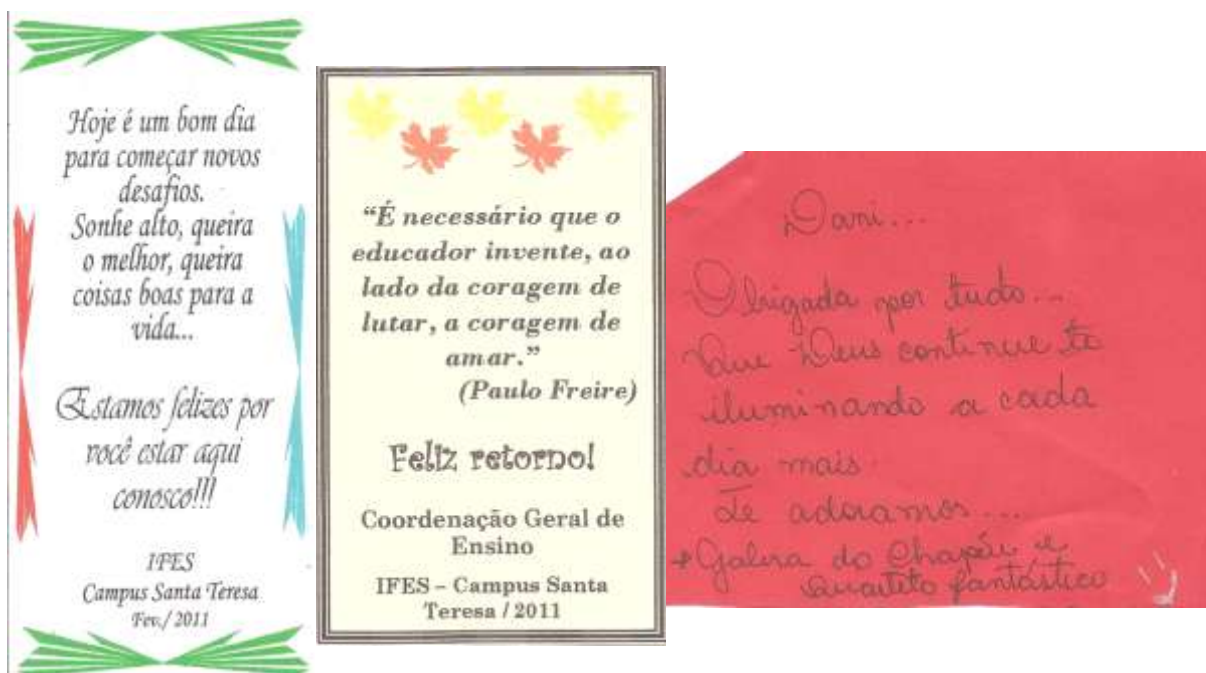 Hoje é um bom dia
para começar novos
desafios.
Sonhe alto, queira
o melhor, queira
coisas boas para a
vida...
Estamos felizes por
você estar aqui
conosco!!!
IFES
Campus Santa Teresa
Fev./ 2011
“É necessário que o
educador invente, ao
lado da coragem de
lutar, a coragem de
amar.”
(Paulo Freire)
Feliz retorno!
Coordenação Geral de
Ensino
IFES – Campus Santa
Teresa / 2011
Dani...
Obrigada por tudo...
Que Deus continue te
iluminando a cada
dia mais.
Te adoramos....
Galera do Chapéu e
Quarteto fantástico